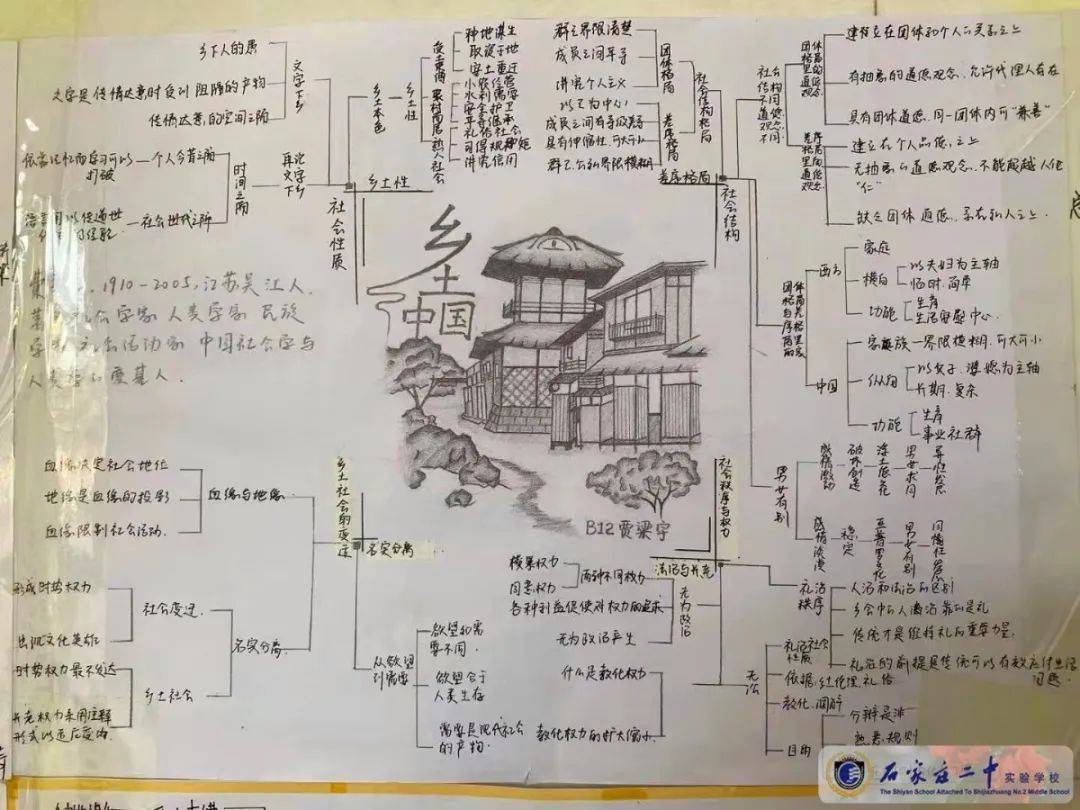 乡下人的愚
文字是传情达意时受到阻隔的产物
传情达意的空间之隔
文字下乡
个人今昔之隔
打破
社会世代之隔
时间之隔
再论文字下乡
社会性质
乡土性
乡土本色
乡土性
种地谋生
取资于地
安土重迁
小农经营
水利需要
安全护卫
平等继承
礼俗社会
讲究信用
熟人社会
群之界限清楚
成员之间平等
讲究个人主义
团体格局
以己为中心
成员之间有等级差等
具有伸缩性,可大可小
群己公私界限模糊
差序格局
社会结构格局
差序格局
社会结构
社会结构不同道德观念不同
团体格局里的道德观念
有抽象的道德观念,允许代理人存在
具有团体道德,同一团体内可“兼善”
差序格局里的道德观念
无抽象的道德观念,不能超越人伦
“仁”
缺乏团体道德,系在私人之上.
西方
家庭
横向
以夫妇为主轴
临时,简单
功能
生育
生活安慰中心.
中国
家族
界限模糊,可大可小
纵向
以父子、婆媳为主轴
长期,复杂
功能
生育
事业社群
男女有别
感情激动
破坏创造
浮士德式
男女求同
异性恋
感情淡漠
稳定
亚普罗式
男女有别
同性
乡土中国
B12 贾梁宇
1910-2005,江苏吴江人.
社会学家 人类学家 民族
学家 社会活动家 中国社会学与
人类学的奠基人.
血缘决定社会地位
地缘是血缘的投影
血缘限制社会活动.
血缘与地缘
乡土社会的变迁
名实分离
形成时势权力
出现文化英雄
社会变迁.
时势权力最不发达
长老权力采用注释
形式以适应变动.
乡土社会
名实分离.
从欲望到需要
欲望和需
要不同.
欲望合于
人类生存
需要是现代社会
的产物.
社会秩序与权力
法治与长老
横暴权力
同意权力
两种不同权力
各种利益促使对权力的追求
无为政治产生
无为政治
什么是教化权力
教化权力的扩大缩小.
礼治秩序
人治和法治的区别
乡土中的人满治靠的是礼
传统才是维持礼的重要力量.
礼治的前提是传统可以有效应付生活
问题.
无讼
礼治社会性质
依据:社伦理、礼俗
教化、调解
目的
分辨是非
熟悉规则
石家庄二中实验学校
The Shiyan School Attached To Shijiazhuang No.2 Middle School